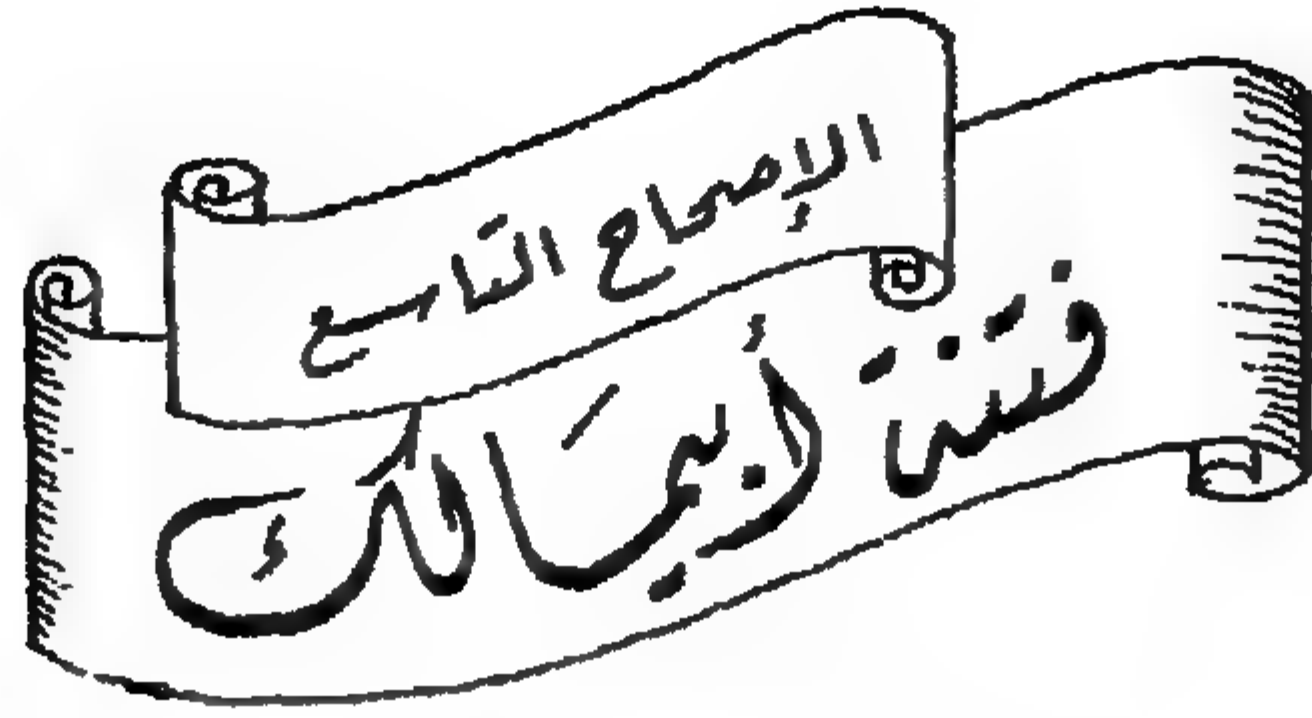 الإصحاح التاسع
فتنة أبيمَالك